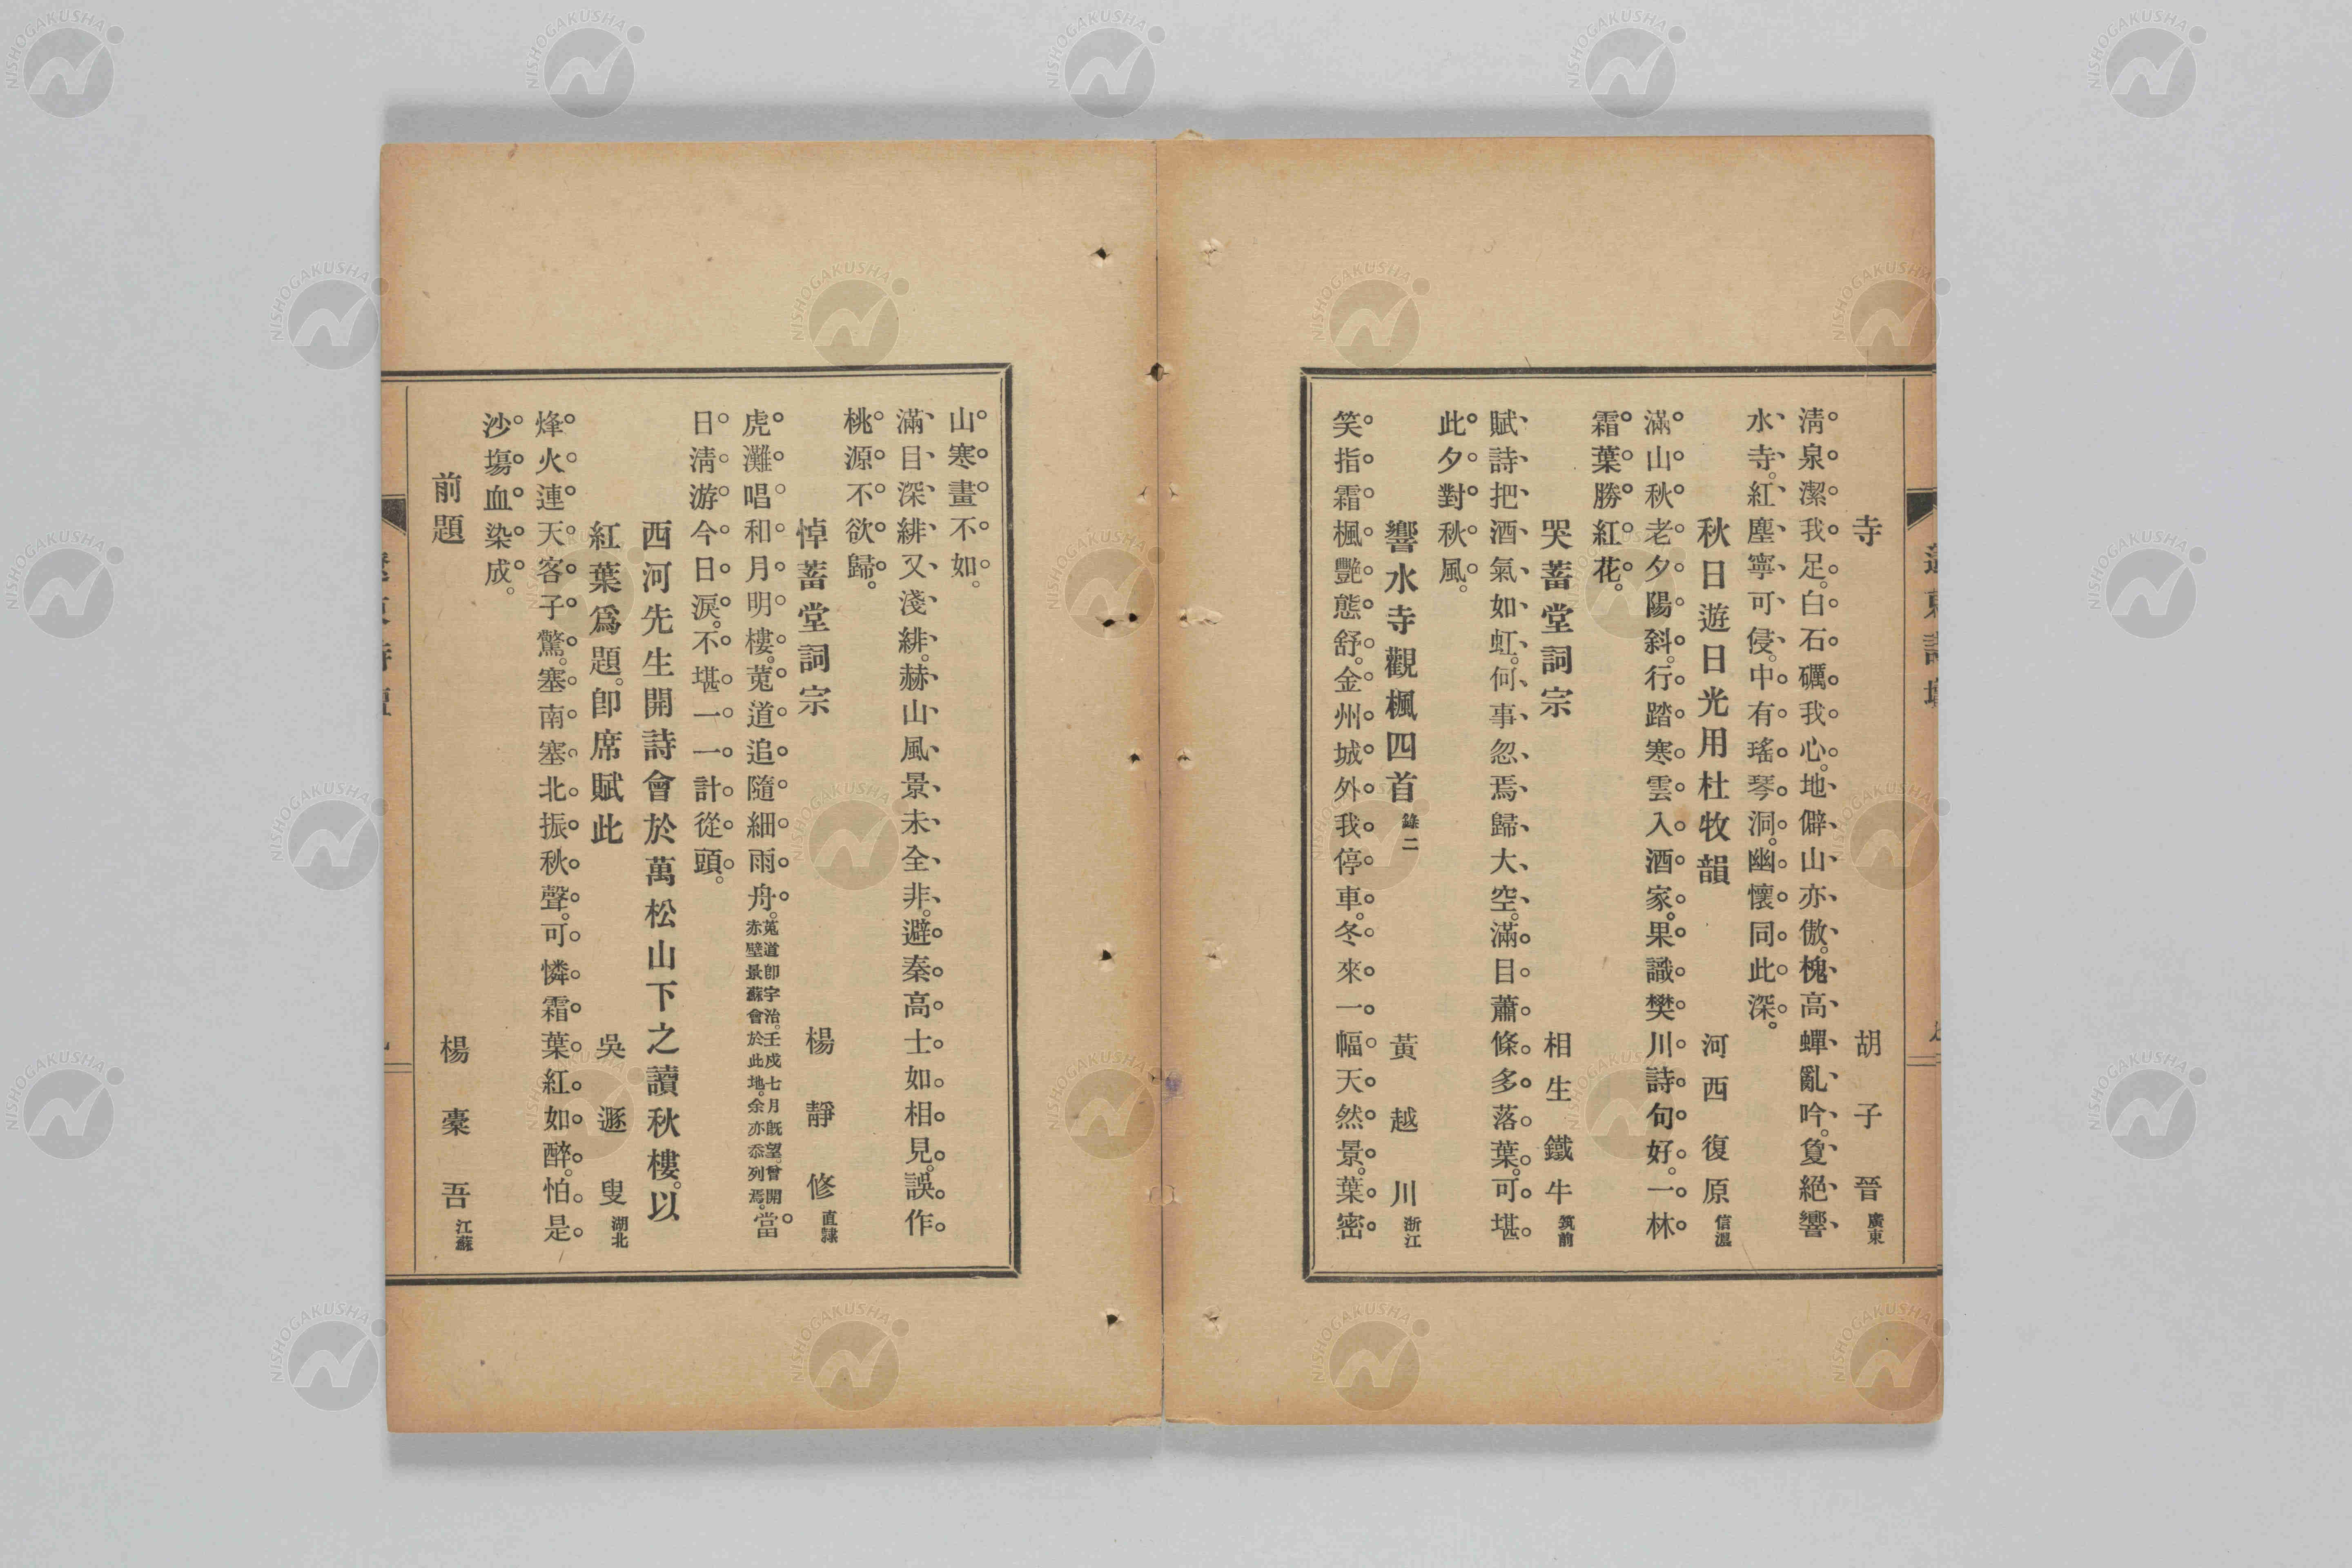 寺　胡子晉 廣東
清泉潔我足。白石礪我心。地僻山亦傲。槐高蟬亂吟。夐絕響
水寺。紅塵寧可侵。中有瑤琴洞。幽懷同此深。
秋日遊日光用杜牧韻　河西復原 信濃
滿山秋老夕陽斜。行踏寒雲入酒家。果識樊川詩句好。一林
霜葉勝紅花。
哭蓄堂詞宗　相生鐵牛 筑前
賦詩把酒氣如虹。何事忽焉歸大空。滿目蕭條多落葉。可堪
此夕對秋風。
響水寺觀楓四首 錄二　黃越川 浙江
笑指霜楓艷態舒。金州城外我停車。冬來一幅天然景。葉密
山寒畫不如。
滿目深緋又淺緋。赫山風景未全非。避秦高士如相見。誤作
桃源不欲歸。
悼蓄堂詞宗　楊靜修 直隸
虎灘唱和月明樓。菟道追隨細雨舟。菟道卽宇治。壬戌七月既望。曾開赤壁景蘇會於此地。余亦忝列焉。當
日清游今日淚。不堪一一計從頭。
西河先生開詩會於萬松山下之讀秋樓。以
紅葉爲題。卽席賦此　吳遯叟 湖北
烽火連天客子驚。塞南塞北振秋聲。可憐霜葉紅如醉。怕是
沙塲血染成。
前題　楊槖吾 江蘇
NISHOGAKUSHA